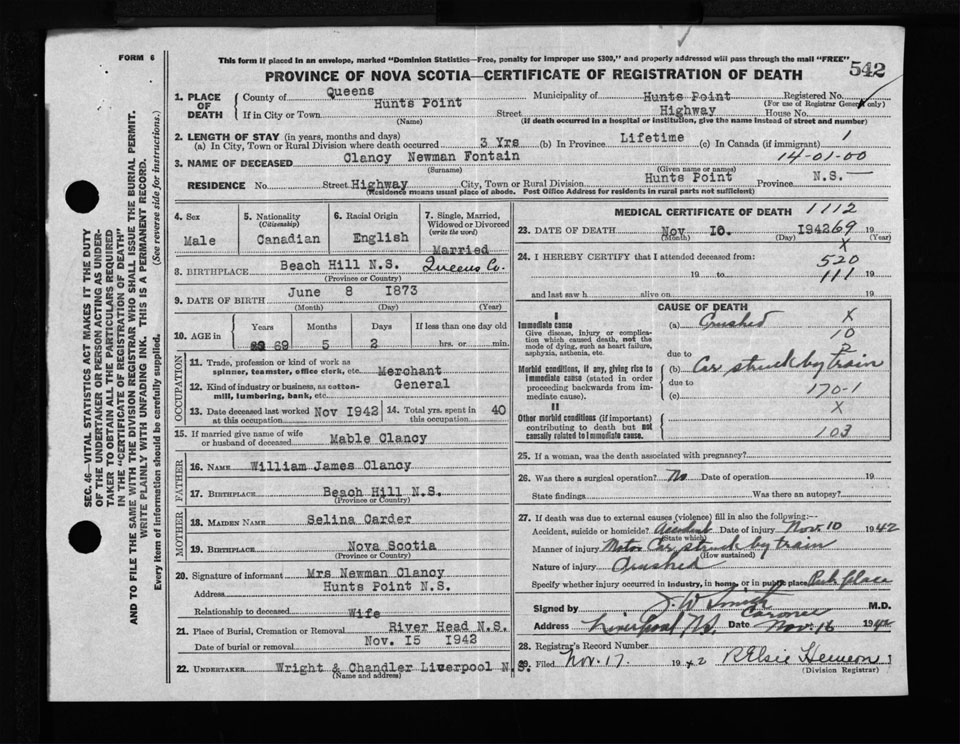 FORM 6
This form if placed in an envelope, marked "Dominion Statistics—Free, penalty for improper use $300," and properly addressed will pass through the mail "FREE"
PROVINCE OF NOVA SCOTIA—CERTIFICATE OF REGISTRATION OF DEATH
542
SEC. 46—VITAL STATISTICS ACT MAKES IT THE DUTY
OF THE UNDERTAKER OR PERSON ACTING AS UNDER-
TAKER TO OBTAIN ALL THE PARTICULARS REQUIRED
IN THE "CERTIFICATE OF REGISTRATION OF DEATH"
AND TO FILE THE SAME WITH THE DIVISION REGISTRAR WHO SHALL ISSUE THE BURIAL PERMIT.
WRITE PLAINLY WITH UNFADING INK. THIS IS A PERMANENT RECORD.
Every item of information should be carefully supplied. (See reverse side for instructions.)
1. PLACE OF DEATH County of Queens Municipality of Hunts Point Registered No.
(For use of Registrar General only)
If in City or Town Hunts Point Street Highway House No.
(Name) (If death occurred in a hospital or institution, give the name instead of street and number)
2. LENGTH OF STAY (in years, months and days)
(a) In City, Town or Rural Division where death occurred 3 Yrs (b) In Province Lifetime (c) In Canada (if immigrant) 1
14-01-00
3. NAME OF DECEASED Clancy Newman Fontain
(Surname) (Given name or names)
RESIDENCE No. Street Highway City, Town or Rural Division Hunts Point Province N.S.
(Residence means usual place of abode. Post Office Address for residents in rural parts not sufficient)
4. Sex
Male
5. Nationality
(Citizenship)
Canadian
6. Racial Origin
English
7. Single, Married, Widowed or Divorced
(write the word)
Married
8. BIRTHPLACE Beach Hill N.S. Queens Co.
(Province or Country)
9. DATE OF BIRTH June 8 1873
(Month) (Day) (Year)
10. AGE in Years Months Days If less than one day old
69 5 2 hrs. or min.
OCCUPATION
11. Trade, profession or kind of work as
spinner, teamster, office clerk, etc. Merchant
12. Kind of industry or business, as cotton-
mill, lumbering, bank, etc. General
13. Date deceased last worked at this occupation Nov 1942 14. Total yrs. spent in this occupation 40
15. If married give name of wife
or husband of deceased Mable Clancy
FATHER
16. NAME William James Clancy
17. BIRTHPLACE Beach Hill N.S.
(Province or Country)
MOTHER
18. MAIDEN NAME Selina Carder
19. BIRTHPLACE Nova Scotia
(Province or Country)
20. Signature of informant Mrs Newman Clancy
Address Hunts Point N.S.
Relationship to deceased Wife
21. Place of Burial, Cremation or Removal River Head N.S.
Date of burial or removal Nov. 15 1942
22. UNDERTAKER Wright & Chandler Liverpool N.S.
(Name and address)
MEDICAL CERTIFICATE OF DEATH 1112
23. DATE OF DEATH Nov 10. 1942 69 19
(Month) (Day) (Year)
X
24. I HEREBY CERTIFY that I attended deceased from:
520
19 to 111 19
and last saw h alive on 19
CAUSE OF DEATH
I
Immediate cause
Give disease, injury or complica-
tion which caused death, not the
mode of dying, such as heart failure,
asphyxia, asthenia, etc.
(a) Crushed X
10
due to
Morbid conditions, if any, giving rise to
immediate cause (stated in order
proceeding backwards from im-
mediate cause).
(b) Car struck by train
due to
(c) 170-1
X
II
Other morbid conditions (if important)
contributing to death but not
causally related to immediate cause.
103
25. If a woman, was the death associated with pregnancy?
26. Was there a surgical operation? No Date of operation 19
State findings Was there an autopsy?
27. If death was due to external causes (violence) fill in also the following:—
Accident, suicide or homicide? Accident Date of injury Nov. 10 1942
(State which)
Manner of injury Motor Car struck by train
(How sustained)
Nature of injury Crushed
Specify whether injury occurred in industry, in home, or in public place Pub. place
Signed by J. W. Smith M.D.
Coroner
Address Liverpool N.S. Date Nov. 16 1942
28. Registrar's Record Number
29. Filed Nov. 17. 1942
(Division Registrar)